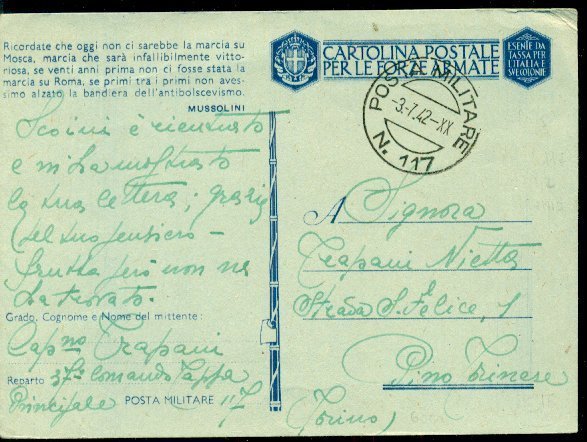 Ricordate che oggi non ci sarebbe la marcia su
Mosca, marcia che sarà infallibilmente vitto-
riosa, se venti anni prima non ci fosse stata la
marcia su Roma, se primi tra i primi non aves-
simo alzato la bandiera dell'antibolscevismo.
MUSSOLINI
CARTOLINA POSTALE
PER LE FORZE ARMATE
ESENTE DA
TASSA PER
L'ITALIA E
SUE COLONIE
POSTA MILITARE
-3.7.42-XX
N. 117
è rientrato
e mi ha mostrato
la tua lettera; grazie
del tuo pensiero -
frutta però non ne
ha trovato.
Grado, Cognome e Nome del mittente:
Capno Trapani
Reparto 37° Comando Tappa
Principale POSTA MILITARE 117
A Signora
Trapani Nietta
Strada S. Felice, 1
Pino Torinese
(Torino)